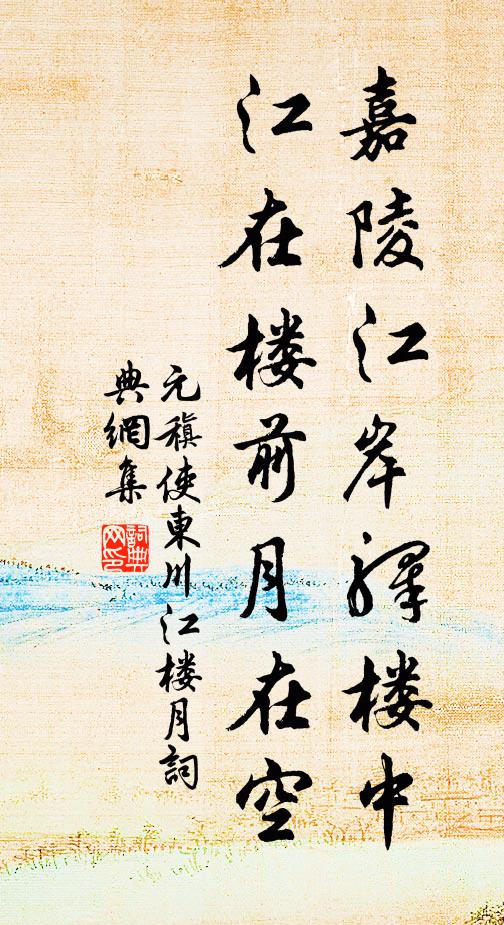 嘉陵江岸驿楼中
江在楼前月在空
元稹使東川江楼月詞
典網集
詞典
网印